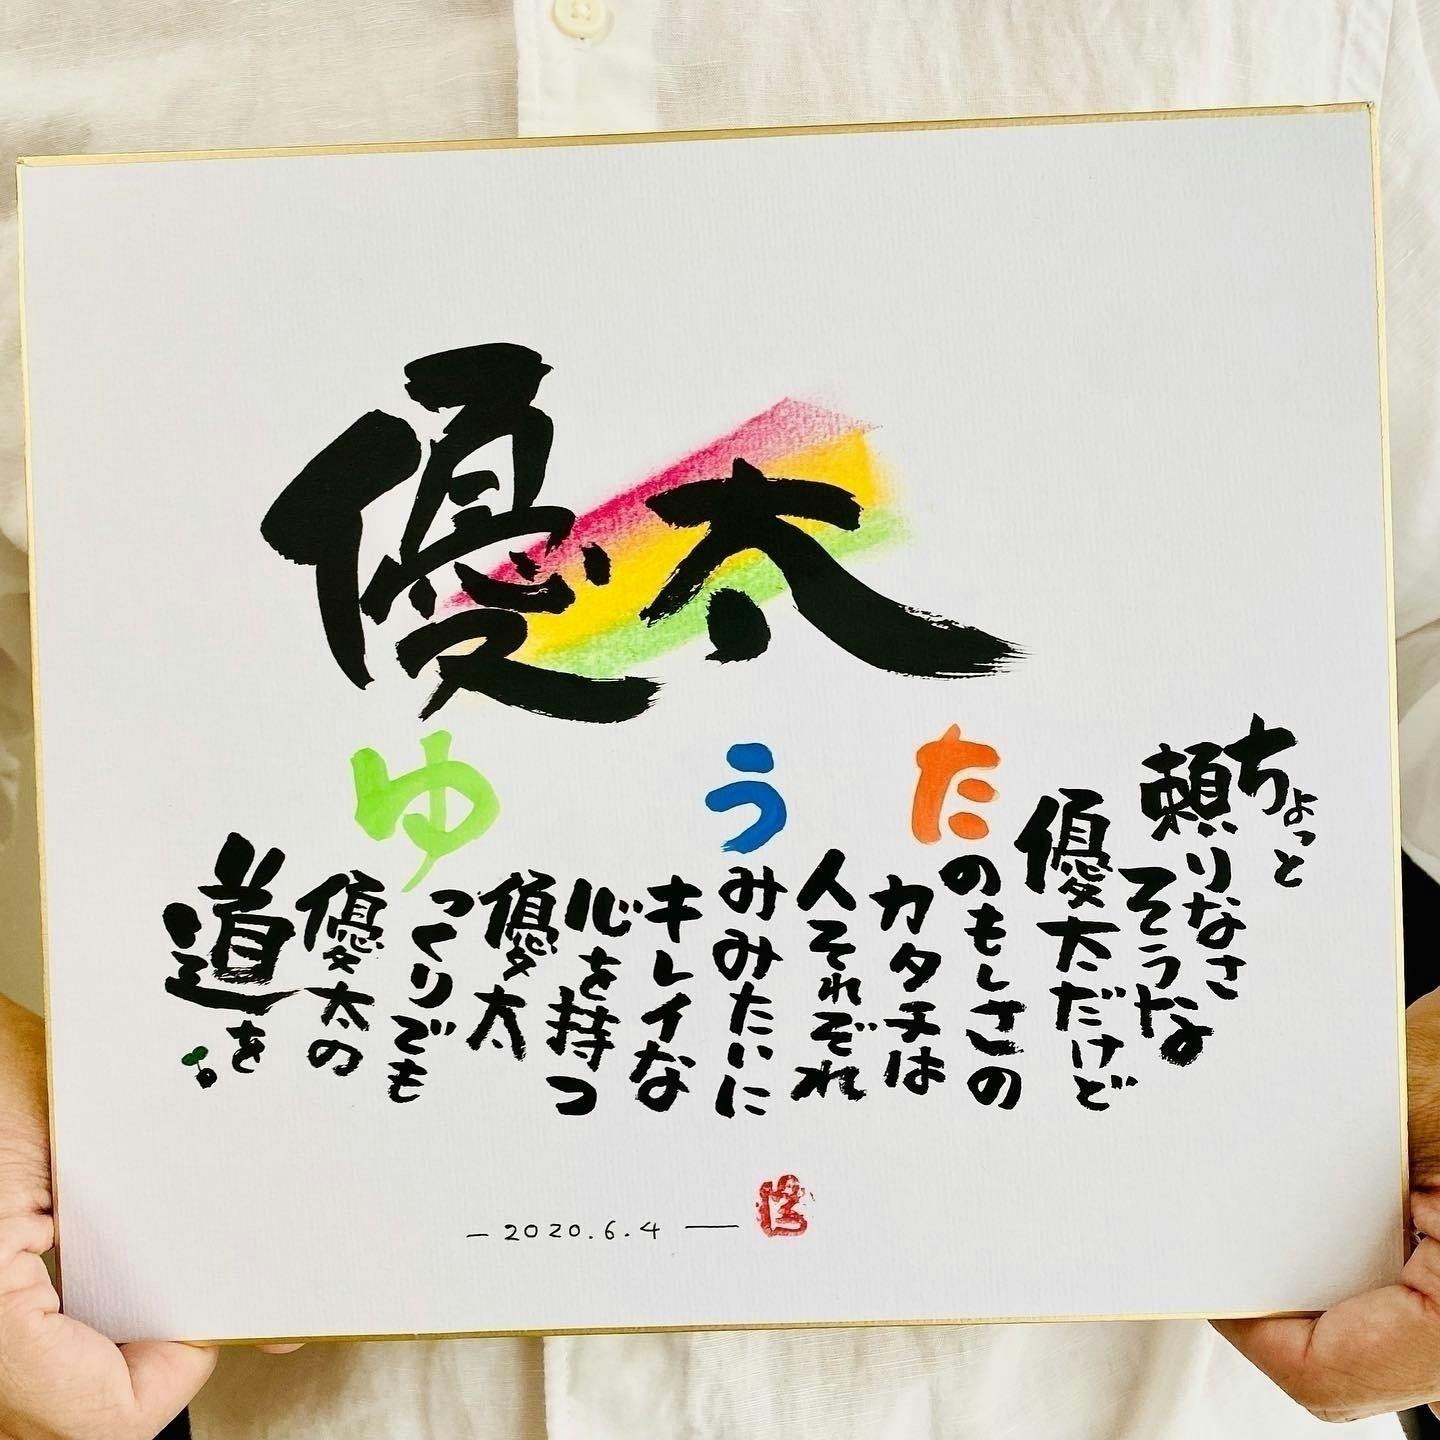 優太
ゆうた
ちょっと
頼りなさ
そうな
優太だけど
のもしさの
カタチは
人それぞれ
みみたいに
キレイな
心を持つ
優太
っくりでも
優太の
道を
－2020.6.4－